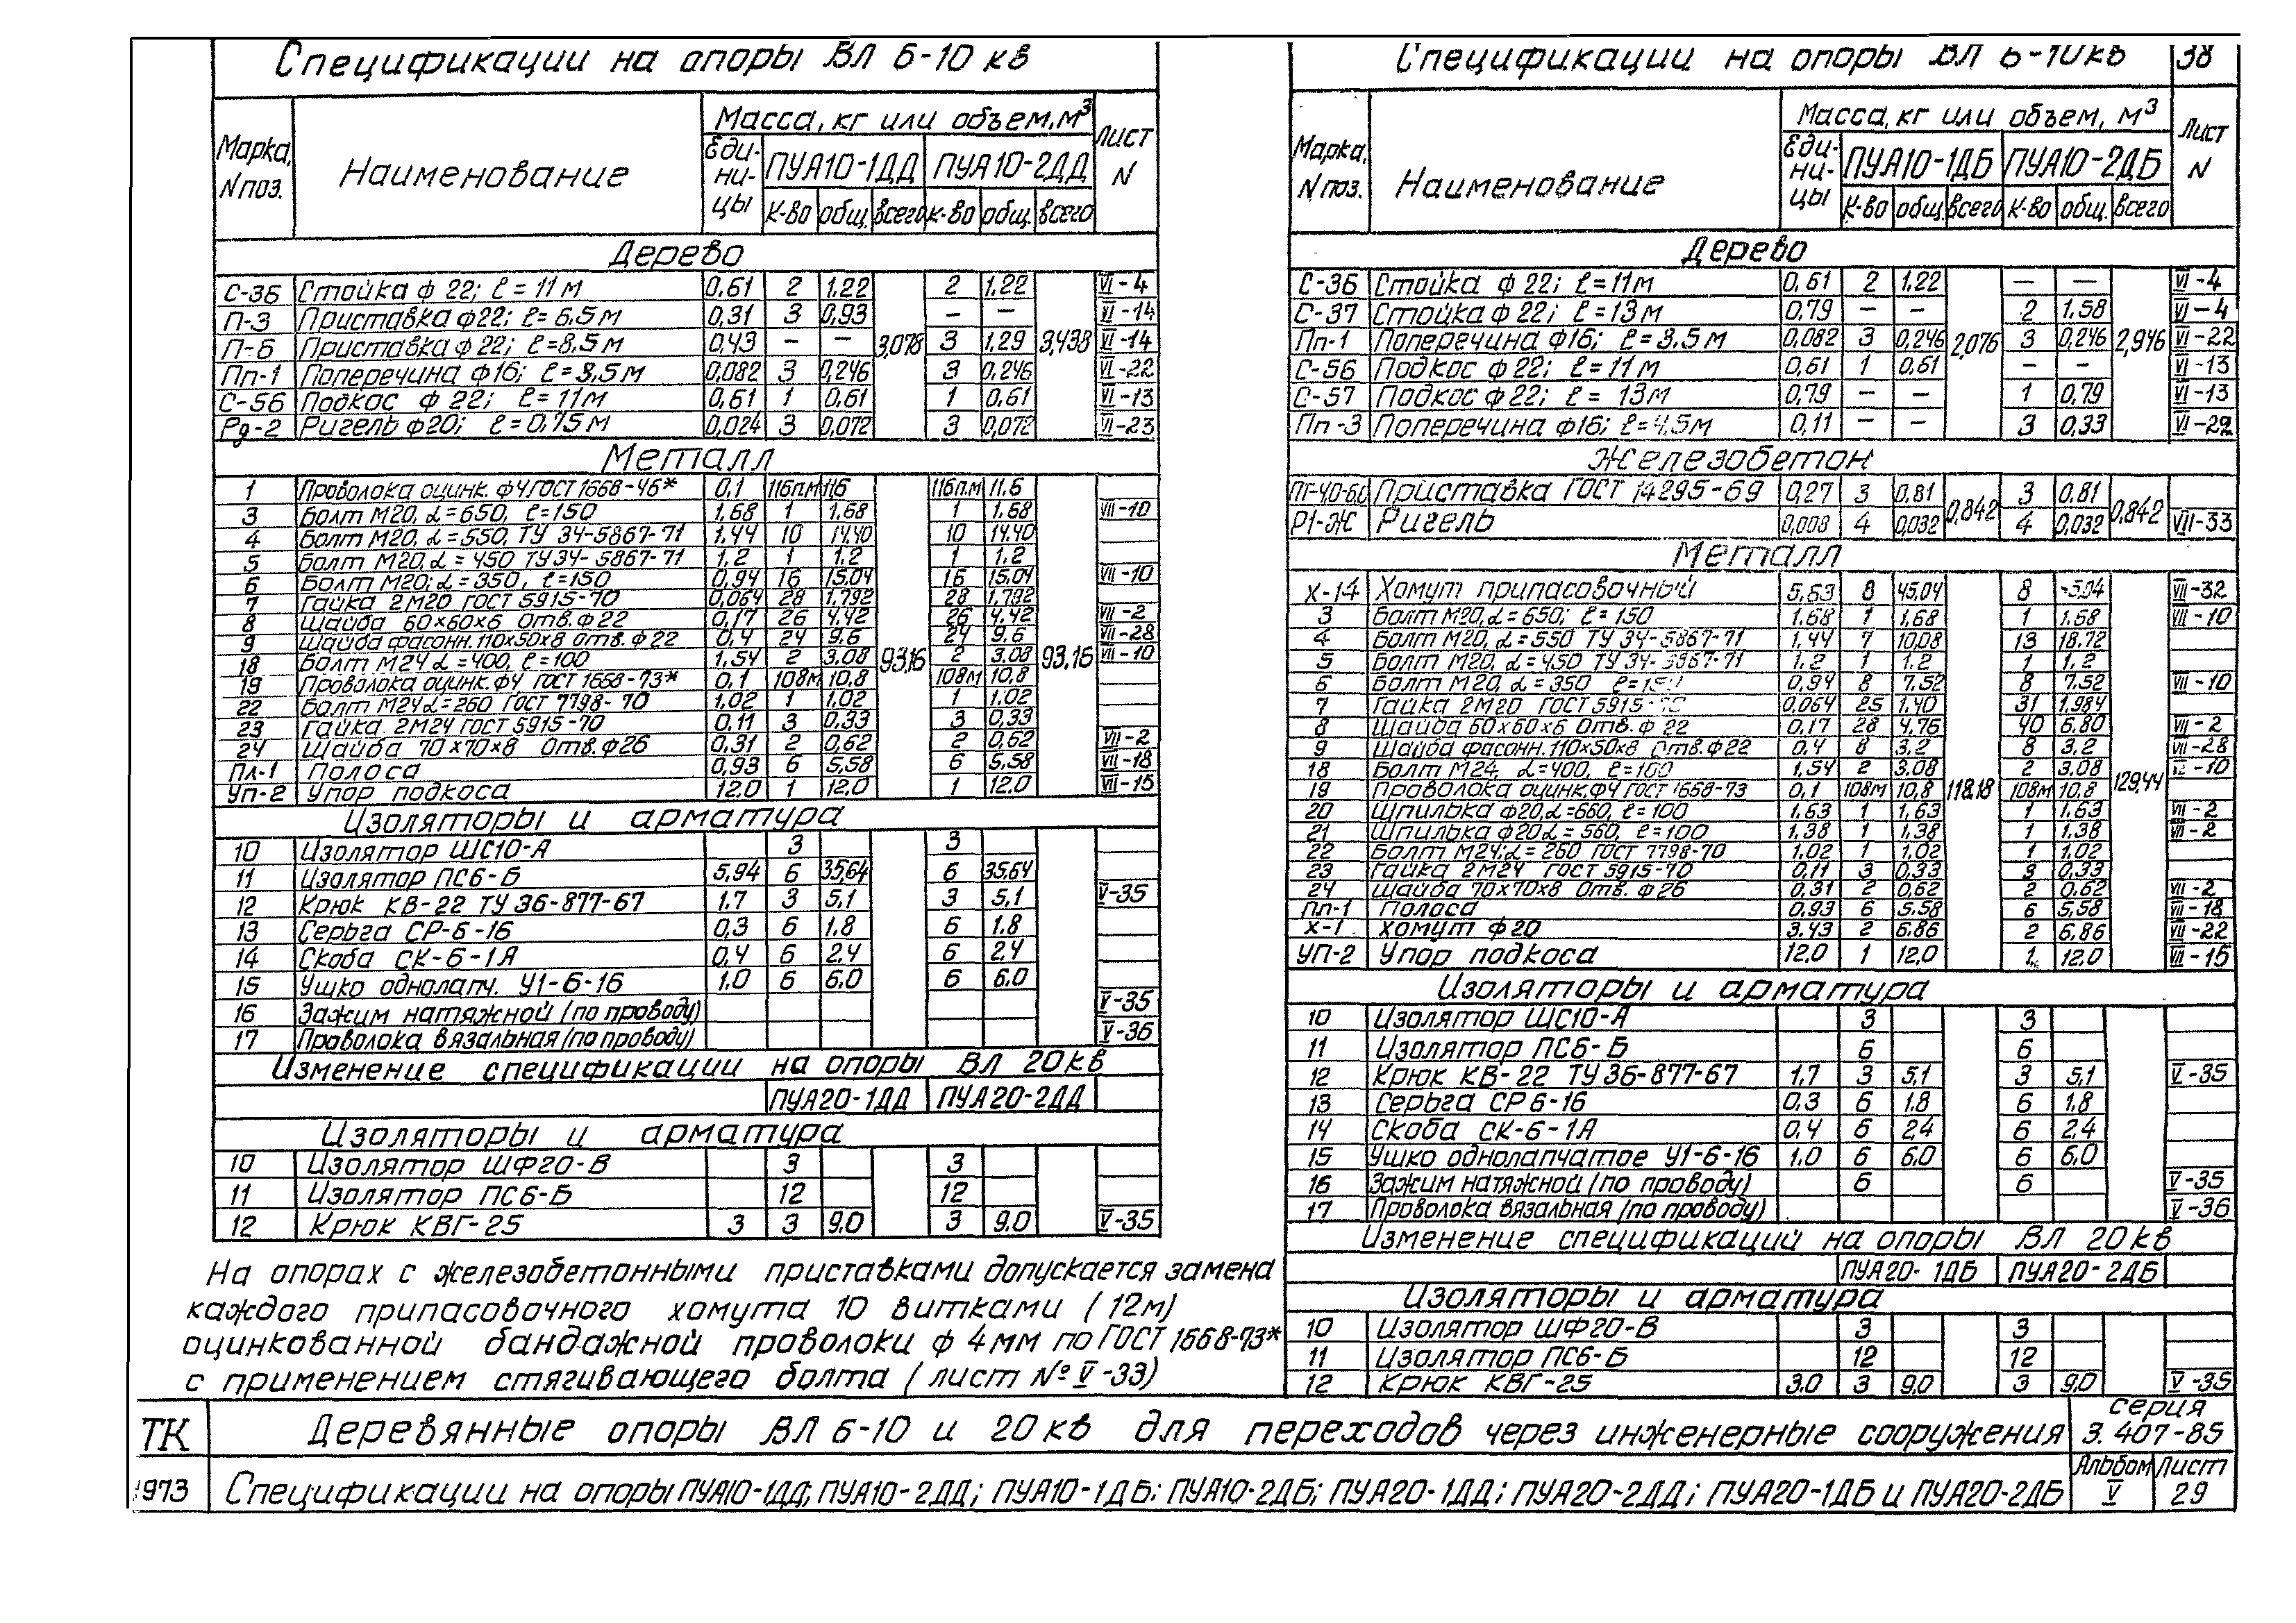 Спецификации на опоры ВЛ 6-10 кв
Марка, N поз. Наименование Масса, кг или объем, м³ Лист N
Единицы ПУА10-1ДД ПУА10-2ДД
к-во общ. всего к-во общ. всего
Дерево
С-36 Стойка ф 22; ℓ = 11 м 0,61 2 1.22 2 1,22 VI-4
П-3 Приставка ф22; ℓ= 6,5 м 0,31 3 0,93 — — VI-14
П-6 Приставка ф 22; ℓ=8,5 м 0,43 — — 3,078 3 1,29 3,438 VI-14
Пп-1 Поперечина ф16; ℓ=3,5 м 0,082 3 0,246 3 0,246 VI-22
С-56 Подкос ф 22; ℓ= 11м 0,61 1 0,61 1 0,61 VI-13
Рд-2 Ригель ф20; ℓ = 0,75 м 0,024 3 0,072 3 0,072 VI-23
Металл
1 Проволока оцинк. ф4 ГОСТ 1668-46* 0,1 116п.м 11.6 116п.м 11.6
3 Болт М20, d=650, ℓ=150 1,68 1 1,68 1 1.68 VII-10
4 Болт М20, d=550, ТУ 34-5867-71 1,44 10 14,40 10 14.40
5 Болт М20, d = 450 ТУ34-5867-71 1,2 1 1,2 1 1.2
6 Болт М20; d=350, ℓ=150 0,94 16 15,04 16 15,04 VII-10
7 Гайка 2М20 ГОСТ 5915-70 0,064 28 1,792 28 1,792
8 Шайба 60×60×6 Отв. ф 22 0,17 26 4,42 26 4,42 VII-2
9 Шайба фасонн. 110×50×8 Отв. ф 22 0,4 24 9.6 24 9.6 VII-28
18 Болт М24 d=400, ℓ=100 1,54 2 3.08 93,16 2 3.08 93,16 VII-10
19 Проволока оцинк. ф4 ГОСТ 1668-73* 0,1 108м 10,8 108м 10,8
22 Болт М24 d=260 ГОСТ 7798-70 1,02 1 1.02 1 1.02
23 Гайка 2М24 ГОСТ 5915-70 0.11 3 0.33 3 0,33
24 Шайба 70×70×8 Отв. ф26 0,31 2 0,62 2 0,62 VII-2
Пл-1 Полоса 0,93 6 5,58 6 5,58 VII-18
УП-2 Упор подкоса 12.0 1 12.0 1 12.0 VII-15
Изоляторы и арматура
10 Изолятор ШС10-А 3 3
11 Изолятор ПС6-Б 5,94 6 35,64 6 35,64
12 Крюк КВ-22 ТУ 36-877-67 1.7 3 5,1 3 5,1 V-35
13 Серьга СР-6-16 0,3 6 1.8 6 1.8
14 Скоба СК-6-1А 0,4 6 2,4 6 2,4
15 Ушко однолапч. У1-6-16 1.0 6 6.0 6 6.0
16 Зажим натяжной (по проводу) V-35
17 Проволока вязальная (по проводу) V-36
Изменение спецификации на опоры ВЛ 20кв
ПУА20-1ДД ПУА20-2ДД
Изоляторы и арматура
10 Изолятор ШФ20-В 3 3
11 Изолятор ПС6-Б 12 12
12 Крюк КВГ-25 3 3 9.0 3 9.0 V-35
На опорах с железобетонными приставками допускается замена
каждого припасовочного хомута 10 витками (12м)
оцинкованной бандажной проволоки ф 4 мм по ГОСТ 1668-73*
с применением стягивающего болта (лист № V-33)
Спецификации на опоры ВЛ 6-10кв 38
Марка, N поз. Наименование Масса, кг или объем, м³ Лист N
Единицы ПУА10-1ДБ ПУА10-2ДБ
к-во общ. всего к-во общ. всего
Дерево
С-36 Стойка ф 22; ℓ=11м 0,61 2 1,22 — — VI-4
С-37 Стойка ф 22; ℓ=13м 0,79 — — 2 1,58 VI-4
Пп-1 Поперечина ф16; ℓ=3,5м 0,082 3 0,246 2,076 3 0,246 2,946 VI-22
С-56 Подкос ф 22; ℓ=11м 0,61 1 0,61 — — VI-13
С-57 Подкос ф 22; ℓ= 13м 0,79 — — 1 0,79 VI-13
Пп-3 Поперечина ф16; ℓ=4,5м 0,11 — — 3 0,33 VI-22
Железобетон
ПТ-40-6,0 Приставка ГОСТ 14295-69 0,27 3 0,81 0,842 3 0.81 0,842
Р1-Ж Ригель 0,008 4 0,032 4 0,032 VII-33
Металл
Х-14 Хомут припасовочный 5,63 8 45,04 8 5,04 VII-32
3 Болт М20, d=650; ℓ=150 1.68 1 1,68 1 1.68 VII-10
4 Болт М20, d=550 ТУ 34-5867-71 1,44 7 10,08 13 18.72
5 Болт М20, d=450 ТУ 34-5867-71 1,2 1 1.2 1 1,2
6 Болт М20, d=350 ℓ=150 0,94 8 7.52 8 7.52 VII-10
7 Гайка 2М20 ГОСТ 5915-70 0,064 25 1,40 31 1.984
8 Шайба 60×60×6 Отв. ф 22 0,17 28 4,76 40 6.80 VII-2
9 Шайба фасонн. 110×50×8 Отв. ф22 0,4 8 3,2 8 3,2 VII-28
18 Болт М24, d=400, ℓ=100 1.54 2 3.08 2 3.08 -10
19 Проволока оцинк. ф4 ГОСТ 1668-73 0,1 108м 10,8 118,18 108м 10.8 129,44
20 Шпилька ф20, d=660, ℓ=100 1,63 1 1,63 1 1.63 VII-2
21 Шпилька ф20 d=560, ℓ=100 1,38 1 1,38 1 1.38 VII-2
22 Болт М24; d=260 ГОСТ 7798-70 1.02 1 1,02 1 1.02
23 Гайка 2М24 ГОСТ 5915-70 0,11 3 0,33 3 0.33
24 Шайба 70×70×8 Отв. ф26 0,31 2 0,62 2 0,62 VII-2
Пл-1 Полоса 0,93 6 5.58 6 5,58 VII-18
Х-1 Хомут ф20 3.43 2 6.86 2 6,86 VII-22
УП-2 Упор подкоса 12.0 1 12.0 1 12.0 VII-15
Изоляторы и арматура
10 Изолятор ШС10-А 3 3
11 Изолятор ПС6-Б 6 6
12 Крюк КВ-22 ТУ 36-877-67 1,7 3 5,1 3 5,1 V-35
13 Серьга СР 6-16 0,3 6 1.8 6 1.8
14 Скоба СК-6-1А 0,4 6 2,4 6 2,4
15 Ушко однолапчатое У1-6-16 1.0 6 6,0 6 6,0
16 Зажим натяжной (по проводу) 6 6 V-35
17 Проволока вязальная (по проводу) V-36
Изменение спецификаций на опоры ВЛ 20кв
ПУА20-1ДБ ПУА20-2ДБ
Изоляторы и арматура
10 Изолятор ШФ20-В 3 3
11 Изолятор ПС6-Б 12 12
12 Крюк КВГ-25 3.0 3 9,0 3 9,0 V-35
ТК Деревянные опоры ВЛ 6-10 и 20кв для переходов через инженерные сооружения серия 3.407-85
1973 Спецификации на опоры ПУА10-1ДД; ПУА10-2ДД; ПУА10-1ДБ; ПУА10-2ДБ; ПУА20-1ДД; ПУА20-2ДД; ПУА20-1ДБ и ПУА20-2ДБ Альбом V Лист 29